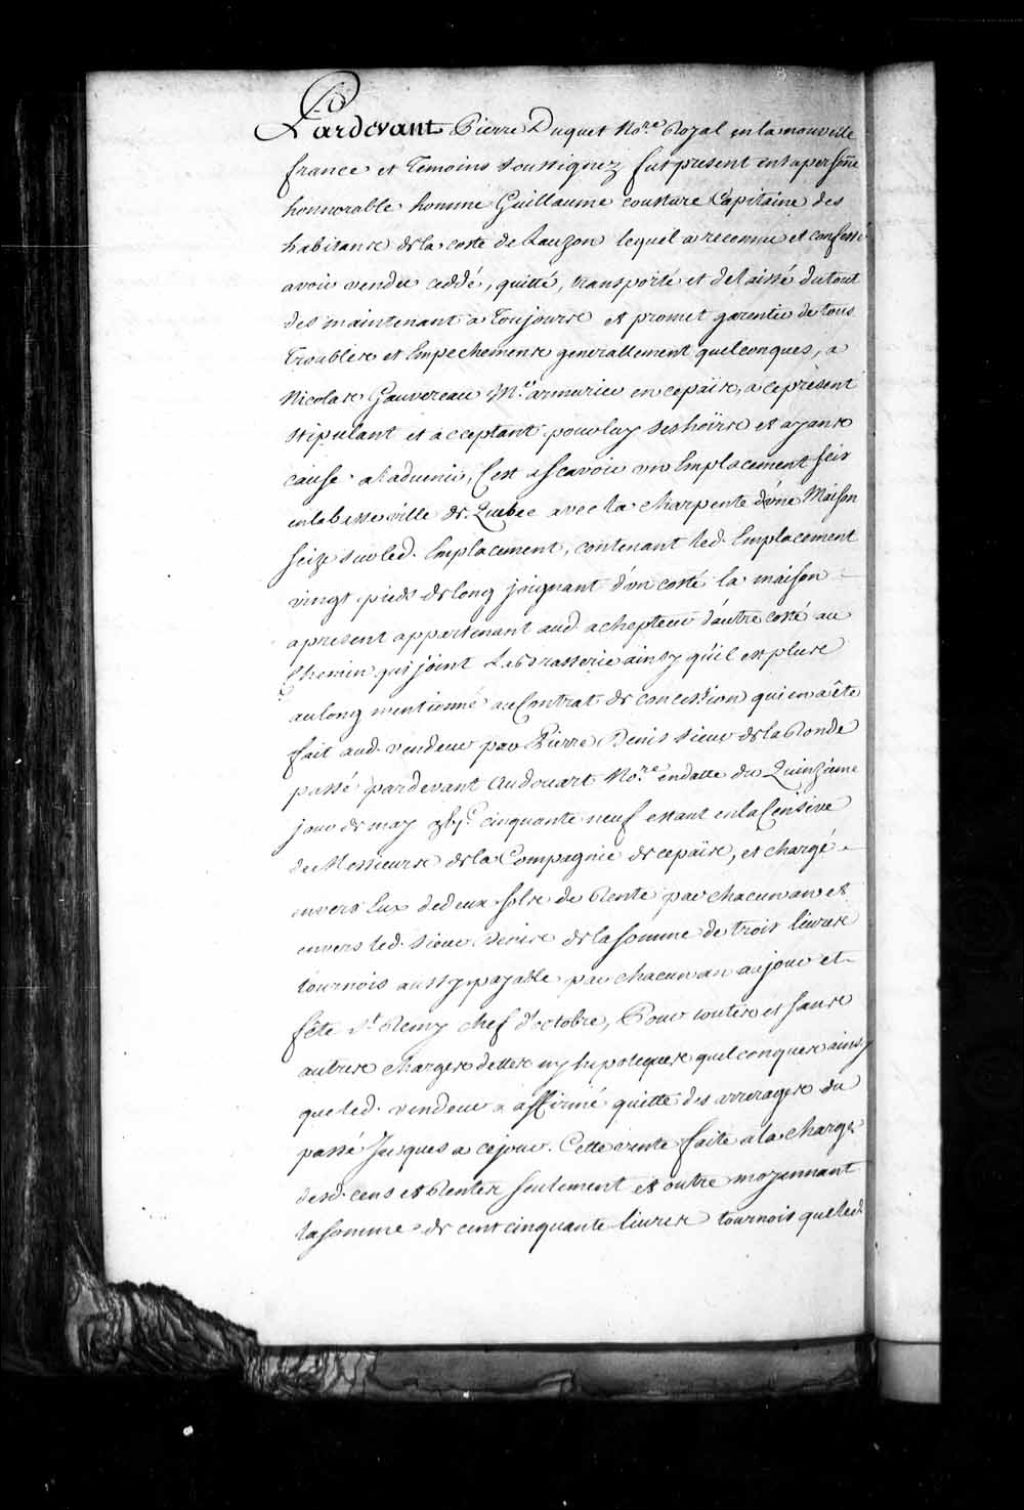 Pardevant Pierre Duquet No.re Royal en la nouvelle
france et Temoins soussignez fut present en sa personne
honnorable homme Guillaume cousture Capitaine des
habitans de la coste de Lauzon lequel a reconnu et confessé
avoir vendu ceddé, quitté, transporté et delaissé du tout
des maintenant a Toujours et promet garentir de tous
Troubles et Empechemens generallement quelconques, a
Nicolas Gauvereau M.e armurier en ce païs, a ce present
stipulant et acceptant pour luy ses hoirs et ayans
cause a l'advenir, C'est ascavoir un Emplacement seis
en la basse ville de Quebec avec la charpente d'une Maison
seize sur led. Emplacement, contenant led. Emplacement
vingt pieds de long joignant d'un costé la maison
apresent appartenant aud. achepteur d'autre costé au
Chemin qui joint La brasserie ainsy qu'il est plus
au long mentionné au Contrat de concession qui en a été
fait aud. vendeur par Pierre Denis sieur de la Ronde
passé pardevant Audouart No.re en datte du Quinziéme
jour de may gbj.C cinquante neuf estant en la Censive
de Messieurs de la Compagnie de ce païs, et chargé
envers Eux de deux sols de Rente par chacun an et
envers led. sieur Denis de la somme de trois livres
tournois aussy payable par chacun an au jour et
fête S.t Remy chef d'octobre, Pour toutes et sans
autres charges dettes ny hipoteques quelconques ainsy
que led. vendeur a affirmé quitte des arrerages du
passé Jusques a ce jour. Cette vente faite a la charge
desd. cens et Rentes seulement et outre moyennant
la somme de cent cinquante livres tournois que led.